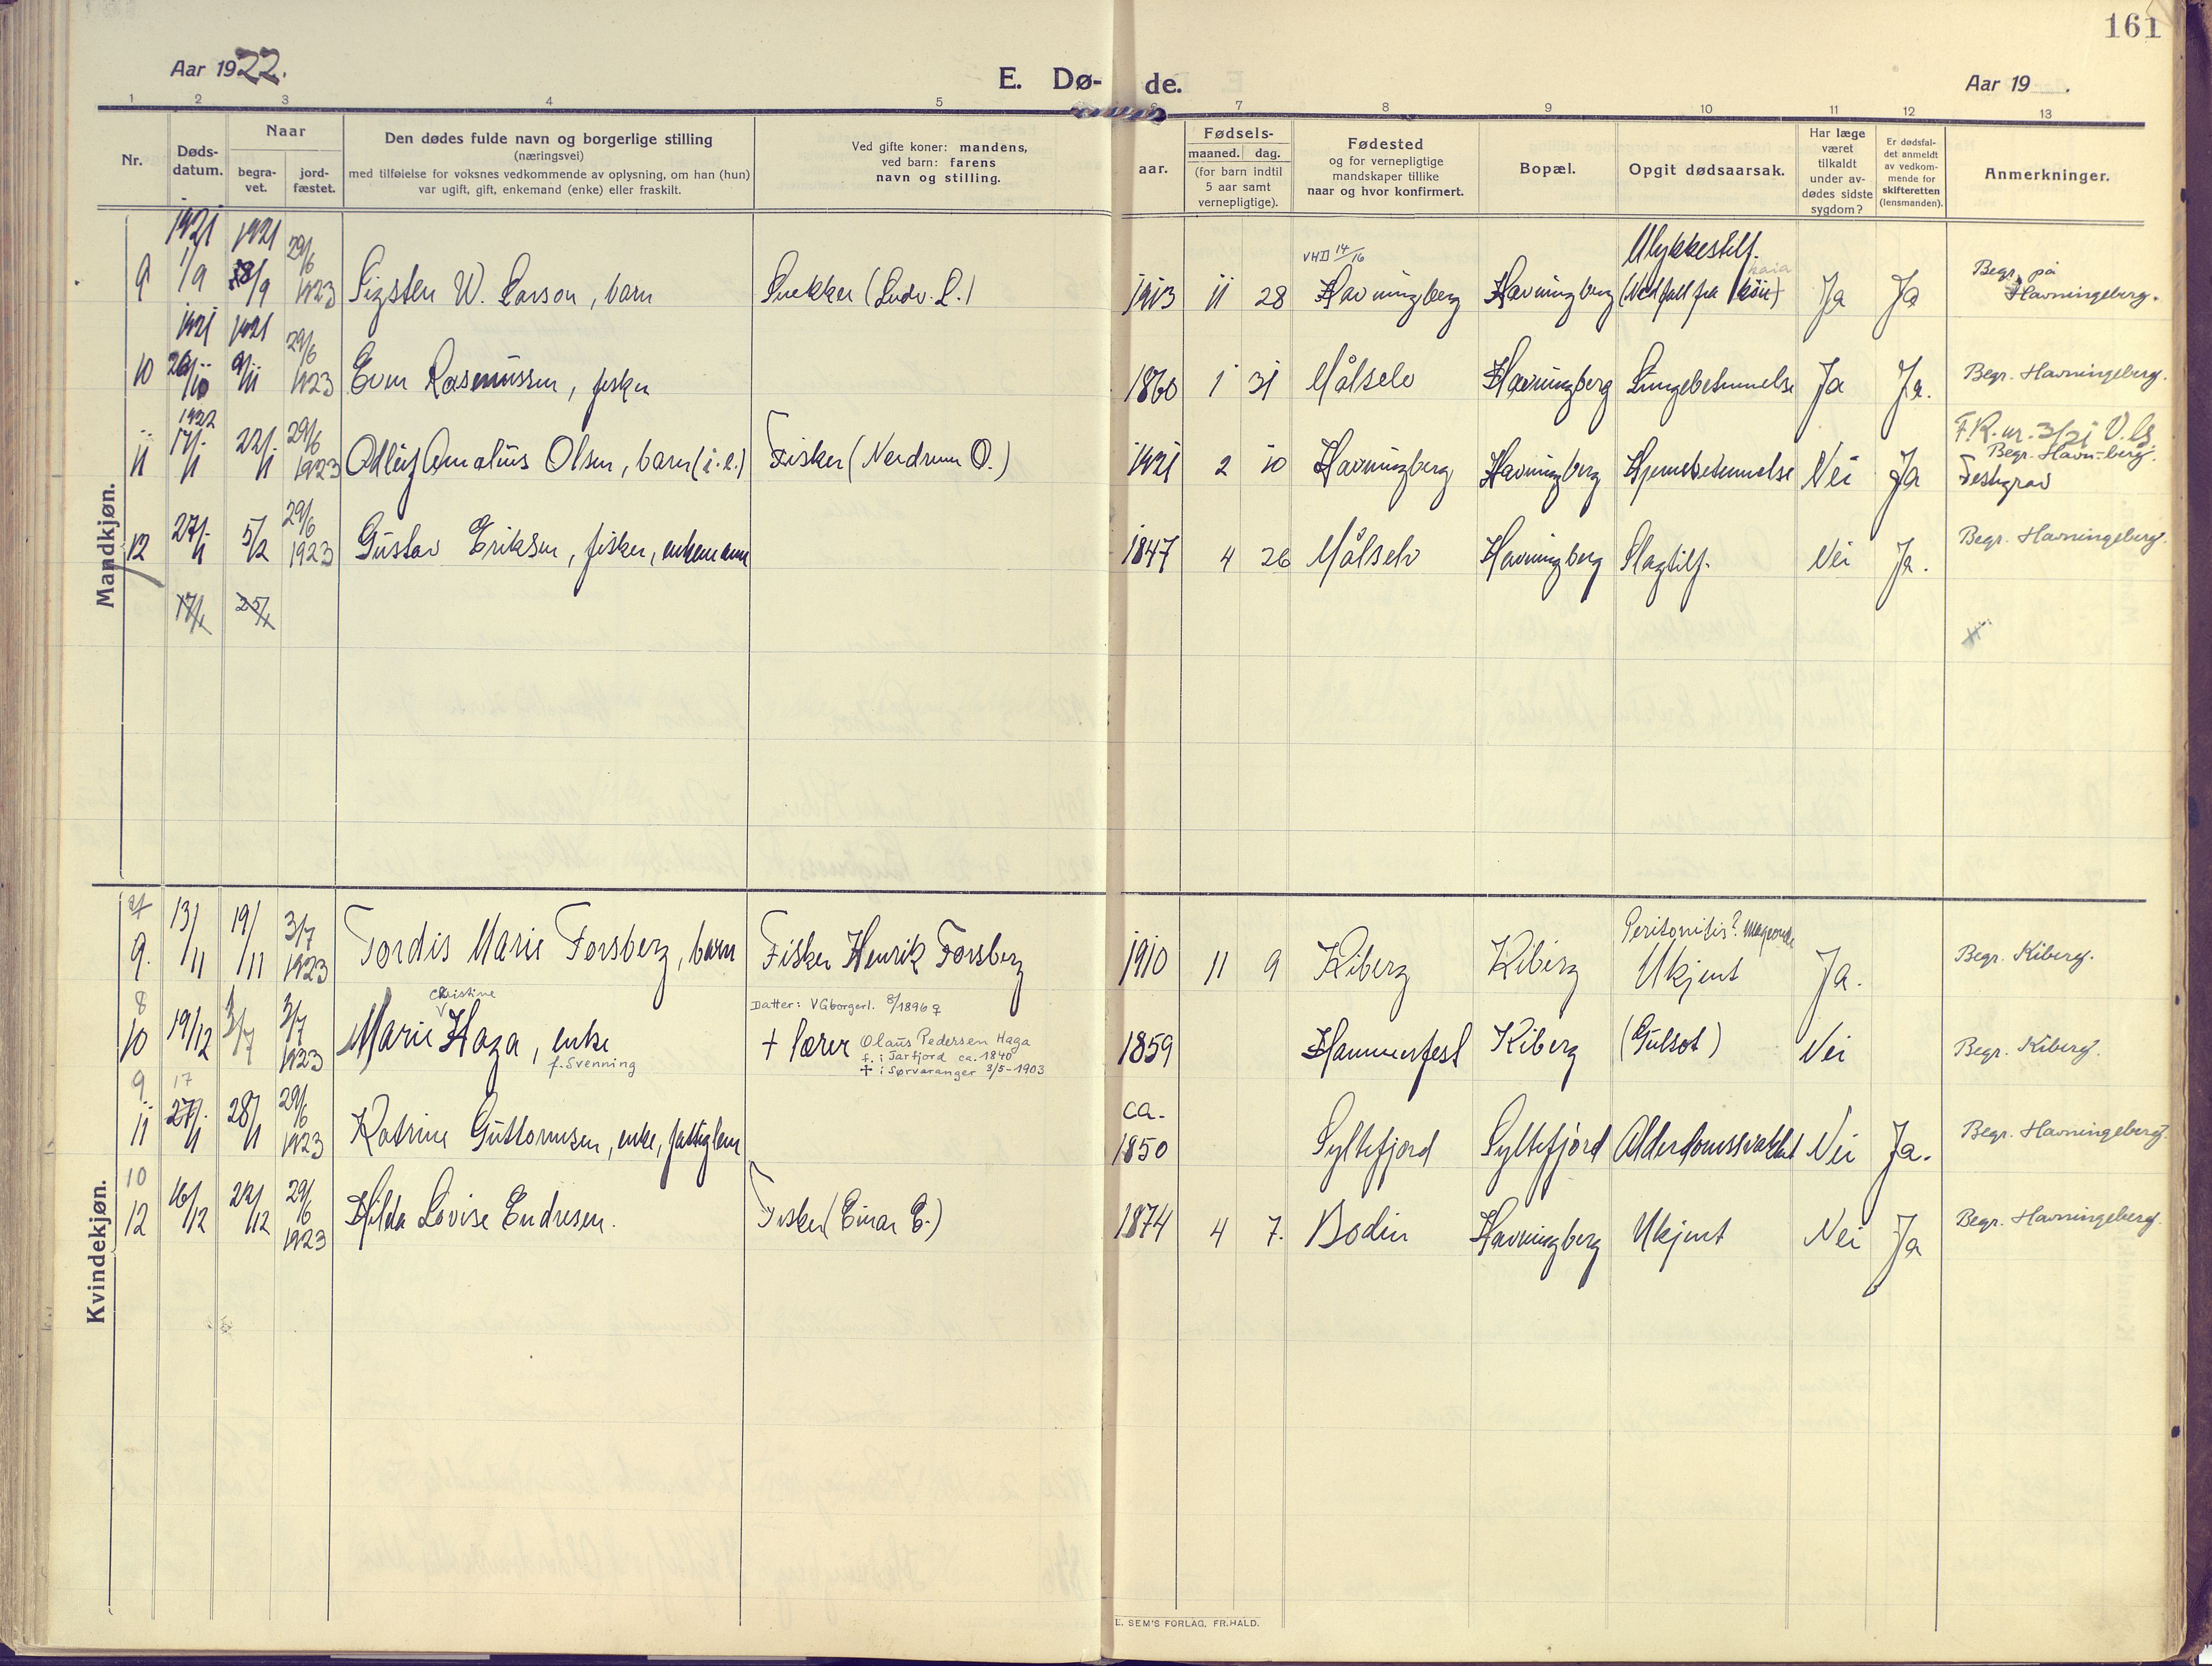 161
Aar 1922.
E. Dø- de.
Aar 19 .
1 2 3 4 5 6 7 8 9 10 11 12 13
Nr.
Døds-
datum.
Naar
begra-
vet.
jord-
fæstet.
Den dødes fulde navn og borgerlige stilling
(næringsvei)
med tilføielse for voksnes vedkommende av oplysning, om han (hun)
var ugift, gift, enkemand (enke) eller fraskilt.
Ved gifte koner: mandens,
ved barn: farens
navn og stilling.
aar.
Fødsels-
maaned. dag.
(for barn indtil
5 aar samt
vernepligtige).
Fødested
og for vernepligtige
mandskaper tillike
naar og hvor konfirmert.
Bopæl.
Opgit dødsaarsak.
Har læge
været
tilkaldt
under av-
dødes sidste
sygdom?
Er dødsfal-
det anmeldt
av vedkom-
mende for
skifteretten
(lensmanden).
Anmerkninger.
Mandkjøn.
1921 1921 29/6 VHD 14/16 Ulykkestilf. kaia Begr. på
9 1/9 8/9 1923 Sigsten W. Larson, barn Snekker (Ludv. L.) 1913 11 28 Havningberg Havningberg (Nedfall fra kaie) Ja Ja Havningeberg.
1921 1921 29/6
10 26/10 9/11 1923 Even Rasmussen, fisker 1860 1 31 Målselv Havningberg Lungebetennelse Ja Ja. Begr. Havningeberg.
1922 29/6 F.R. nr. 3/21 V.Gs.
Begr. Havn-berg.
11 17/1 22/1 1923 Odleif Amalius Olsen, barn (i.e.) Fisker (Nerdrum O.) 1921 2 10 Havningberg Havningberg Hjernebetennelse Nei Ja Festegrav
29/6
12 27/1 5/2 1923 Gustav Eriksen, fisker, enkemann 1847 4 26 Målselv Havningberg Slagtilf. Nei Ja. Begr. Havningeberg.
17/1 25/1
Kvindekjøn.
Peritonitis?
9. 13/11 19/11 3/7 1923 Tordis Marie Forsberg, barn Fisker Henrik Forsberg 1910 11 9 Kiberg Kiberg Ukjent Ja. Begr. Kiberg.
8 Christine Datter: VGborgerl. 8/1896 ♀
10 19/12 3/7 3/7 1923 Marie Haga, enke † lærer Olaus Pedersen Haga 1859 Hammerfest Kiberg (Gulsot) Nei Begr. Kiberg.
f. Svenning f. i Jarfjord ca. 1840
† i Sørvaranger 3/5-1903
9 17 29/6 ca.
11 27/1 28/1 1923 Katrine Guttormsen, enke, fattiglem 1850 Syltefjord Syltefjord Alderdomssvakhet Nei Ja. Begr. Havningeberg.
10 29/6
12 16/12 22/12 1923 Hilda Lovise Endresen. Fisker (Einar E.) 1874 4 7. Bodin Havningberg Ukjent Nei Ja Begr. Havningeberg.
E. SEM'S FORLAG, FR.HALD.